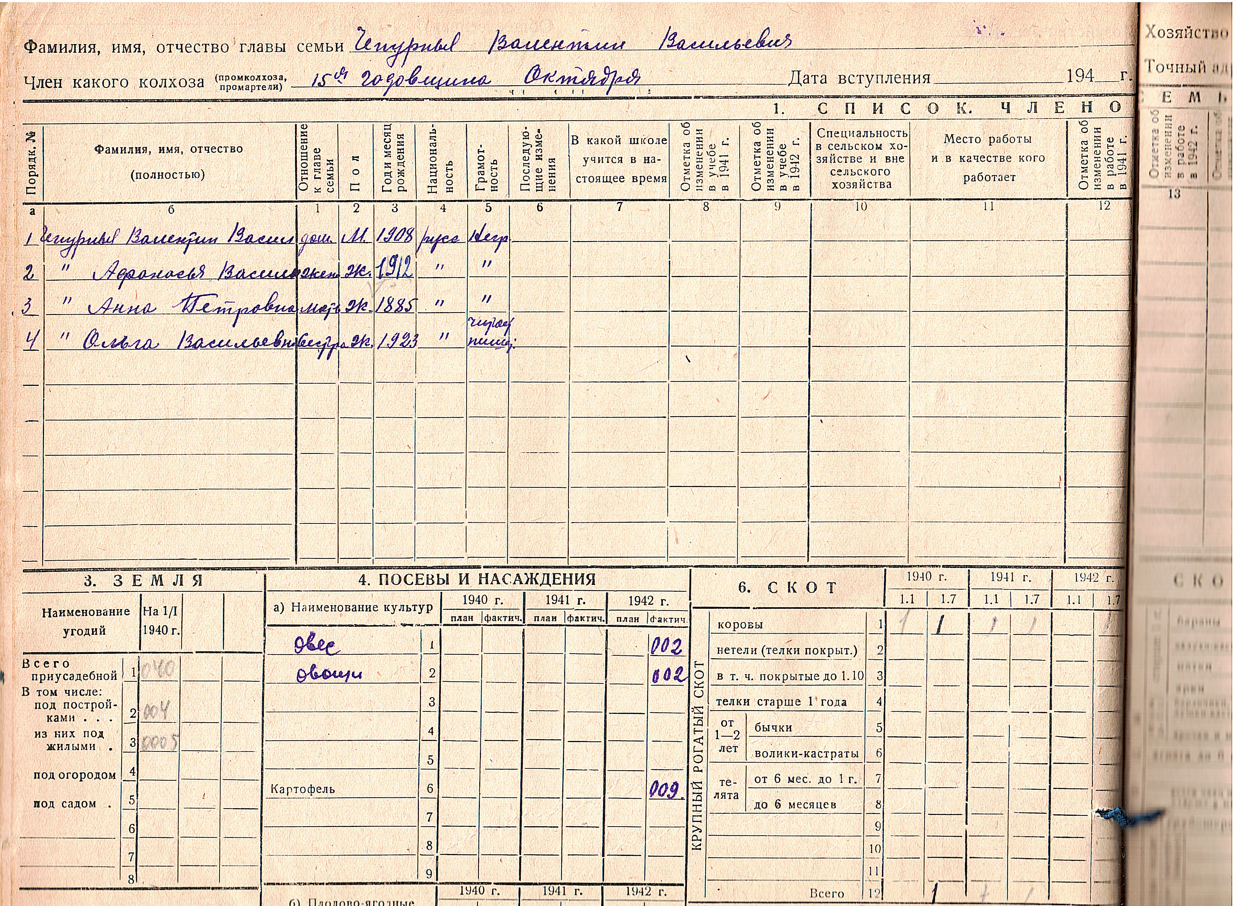 Фамилия, имя, отчество главы семьи Чепурный Валентин Васильевич
Член какого колхоза (промколхоза, промартели) 15ая годовщина Октября Дата вступления 194 г.
1. СПИСОК ЧЛЕНО
Порядк. №
Фамилия, имя, отчество (полностью)
Отношение к главе семьи
Пол
Год и месяц рождения
Националь-ность
Грамот-ность
Последую-щие изме-нения
В какой школе учится в на-стоящее время
Отметка об изменении в учебе в 1941 г.
Отметка об изменении в учебе в 1942 г.
Специальность в сельском хо-зяйстве и вне сельского хозяйства
Место работы и в качестве кого работает
Отметка об изменении в работе в 1941 г.
а б 1 2 3 4 5 6 7 8 9 10 11 12
1 Чепурный Валентин Васил дом. М. 1908 русс Негр.
2 " Афонасья Васильв жен Ж. 1912 " "
3 " Анна Петровна мать Ж. 1885 " "
4 " Ольга Васильевн сестра Ж. 1923 "
3. ЗЕМЛЯ
Наименование угодий На 1/I 1940 г.
Всего приусадебной 1 040
В том числе:
под построй-ками . . . 2 004
из них под жилыми . 3 0005
под огородом 4
под садом . 5
6
7
8
4. ПОСЕВЫ И НАСАЖДЕНИЯ
а) Наименование культур 1940 г. 1941 г. 1942 г.
план фактич. план фактич. план фактич.
овес 1 002
овощи 2 002
3
4
5
Картофель 6 009.
7
8
9
1940 г. 1941 г. 1942 г.
б) Плодово-ягодные
6. СКОТ 1940 г. 1941 г. 1942 г.
1.1 1.7 1.1 1.7 1.1 1.7
КРУПНЫЙ РОГАТЫЙ СКОТ
коровы 1 1 1 1 1
нетели (телки покрыт.) 2
в т. ч. покрытые до 1.10 3
телки старше 1 года 4
от 1—2 лет бычки 5
волики-кастраты 6
те-лята от 6 мес. до 1 г. 7
до 6 месяцев 8
9
10
11
Всего 12 1 1 1
Хозяйство
Точный ад
ЕМЬ
Отметка об изменении в работе в 1942 г.
13
СКО
бараны